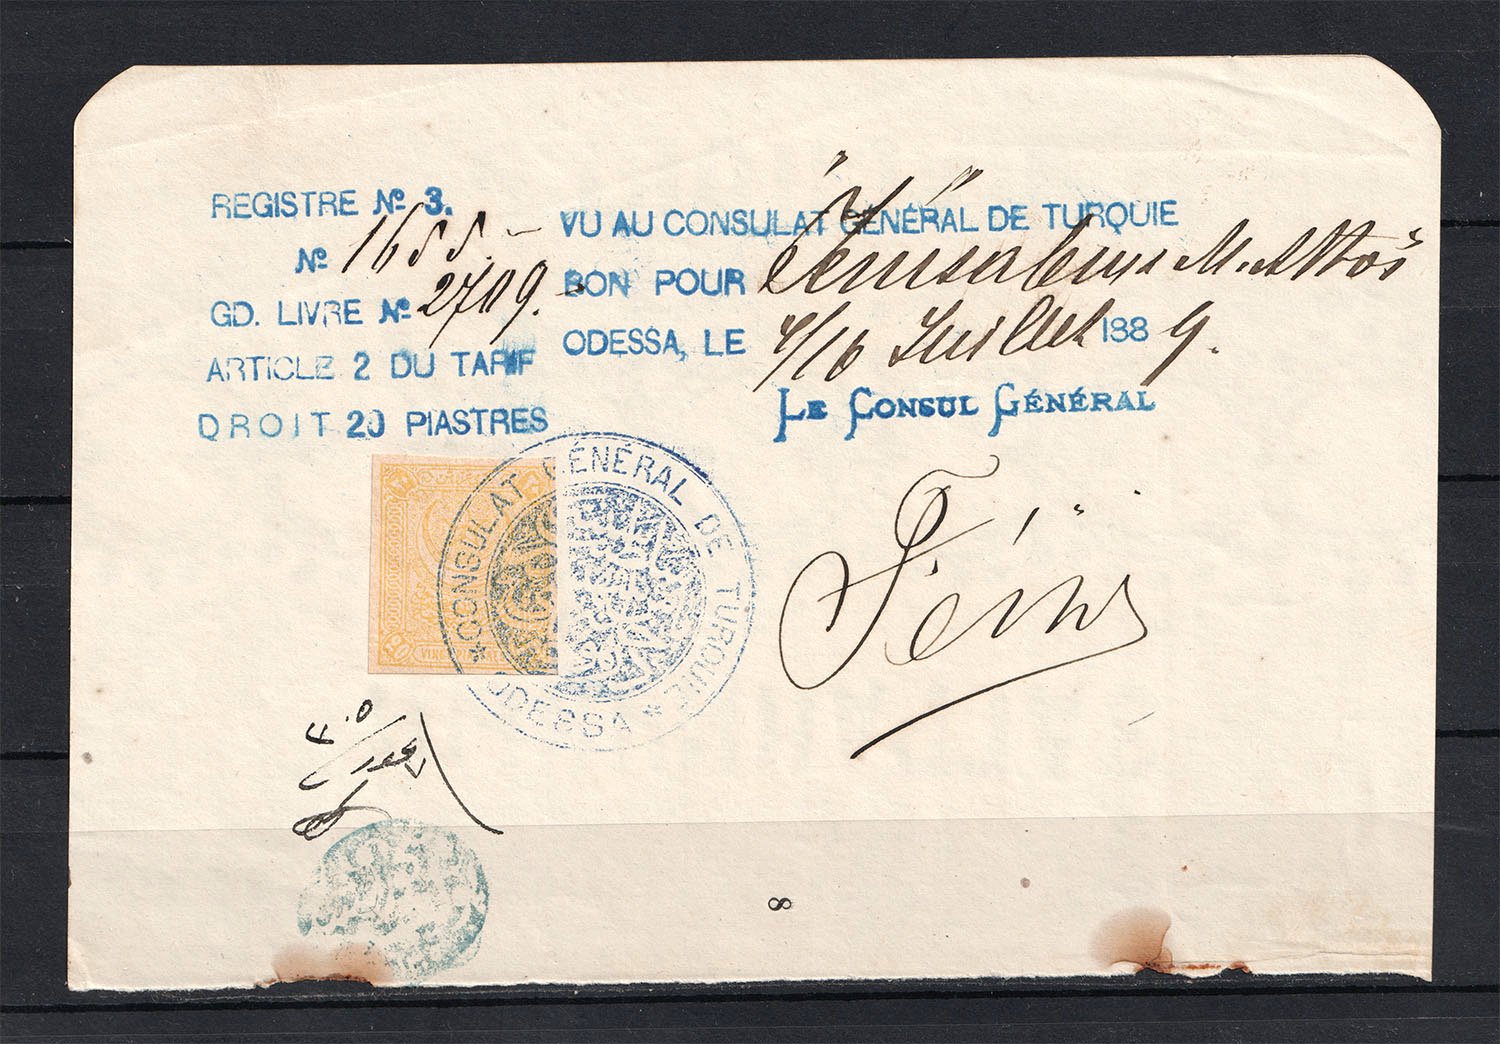 REGISTRE Nº 3.
Nº 1655.-
GD. LIVRE Nº 2709.-
ARTICLE 2 DU TARIF
DROIT 20 PIASTRES
VU AU CONSULAT GÉNÉRAL DE TURQUIE
BON POUR Jérusalem M. Athos
ODESSA, LE 4/16 Juillet 1889.
LE CONSUL GÉNÉRAL
CONSULAT GÉNÉRAL DE TURQUIE
* ODESSA *
20
8